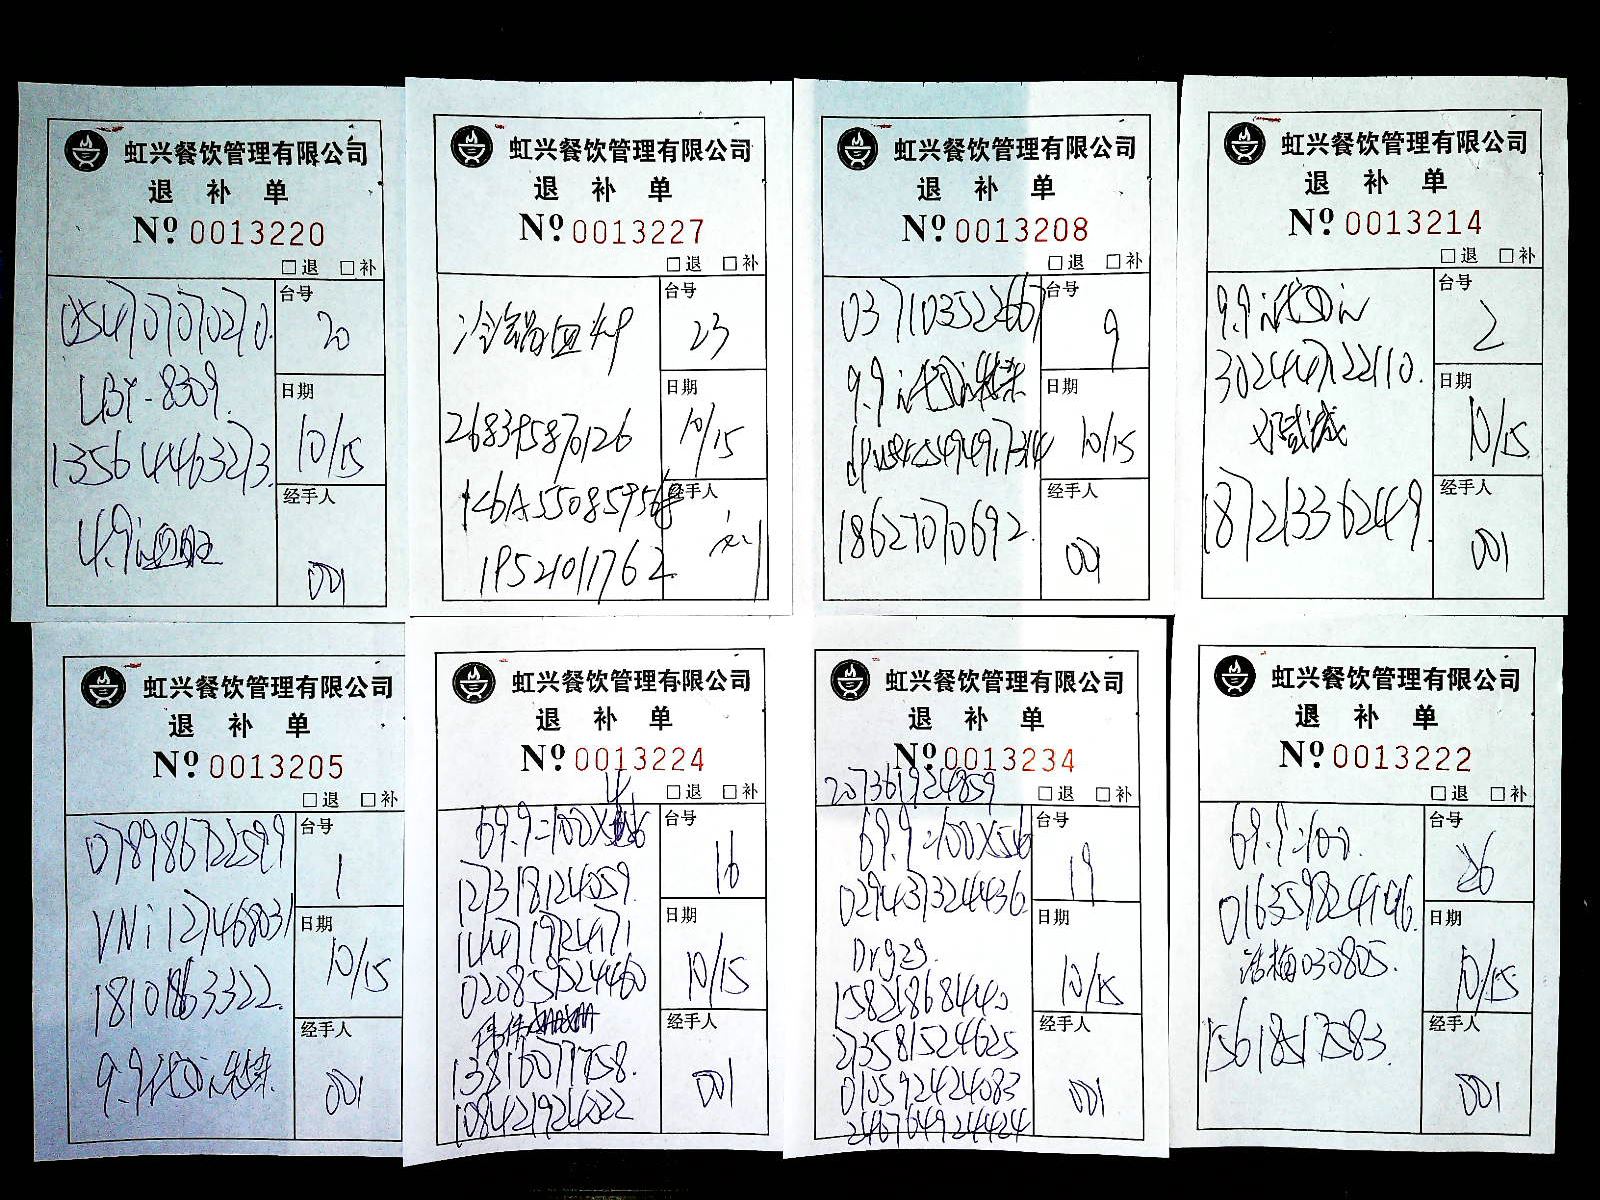 虹兴餐饮管理有限公司
退 补 单
Nº 0013220
□退 □补
054707070270.
台号
20
LBY-8309.
日期
10/15
13564463273.
经手人
4.9
001
虹兴餐饮管理有限公司
退 补 单
Nº 0013227
□退 □补
冷锅血旺
台号
23
268395870126
日期
10/15
经手人
19521011762
虹兴餐饮管理有限公司
退 补 单
Nº 0013208
□退 □补
037103522667
台号
9
9.9代50
日期
10/15
18627070692.
经手人
001
虹兴餐饮管理有限公司
退 补 单
Nº 0013214
□退 □补
9.9代50
台号
2
302447122110.
日期
10/15
18721336249.
经手人
001
虹兴餐饮管理有限公司
退 补 单
Nº 0013205
□退 □补
078986722599
台号
1
VNi127468031
日期
10/15
18101863322.
经手人
9.9代50
001
虹兴餐饮管理有限公司
退 补 单
Nº 0013224
□退 □补
4
69.9=100X
台号
16
127318124059.
144719724171
日期
10/15
020859524460
经手人
13816077758.
001
108421924022
虹兴餐饮管理有限公司
退 补 单
Nº 0013234
207361924859
□退 □补
69.9=100X5
台号
19
029437324436.
日期
10/15
Drgzs.
15821868440
213581524625
经手人
010592424083
001
246764924424
虹兴餐饮管理有限公司
退 补 单
Nº 0013222
□退 □补
69.9=100.
台号
26
016359824946.
日期
10/15
浩梅030805.
15618517583.
经手人
001